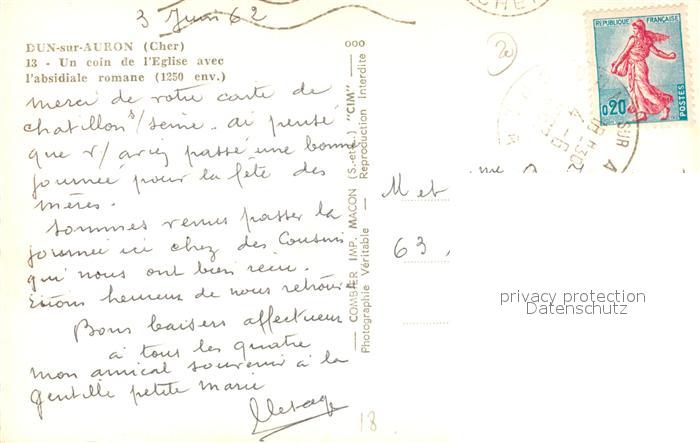 3 Juin 62
DUN-sur-AURON (Cher)
13 - Un coin de l'Eglise avec
l'absidiale romane (1250 env.)
merci de votre carte de
chatillon s/seine. ai pensé
que v/ aviez passé une bonne
journée pour la fête des
mères.
Sommes venus passer la
journée ici chez des Cousins
qui nous ont bien reçu.
Etions heureux de nous retrouver
Bons baisers affectueux
à tous les quatre
mon amical souvenir à la
gentille petite marie
18
COMBIER IMP. MACON (S.-et-L.) "CIM"
Photographie Véritable — Reproduction Interdite
REPUBLIQUE FRANÇAISE
0,20
POSTES
SUR A
M et me
63,
privacy protection
Datenschutz